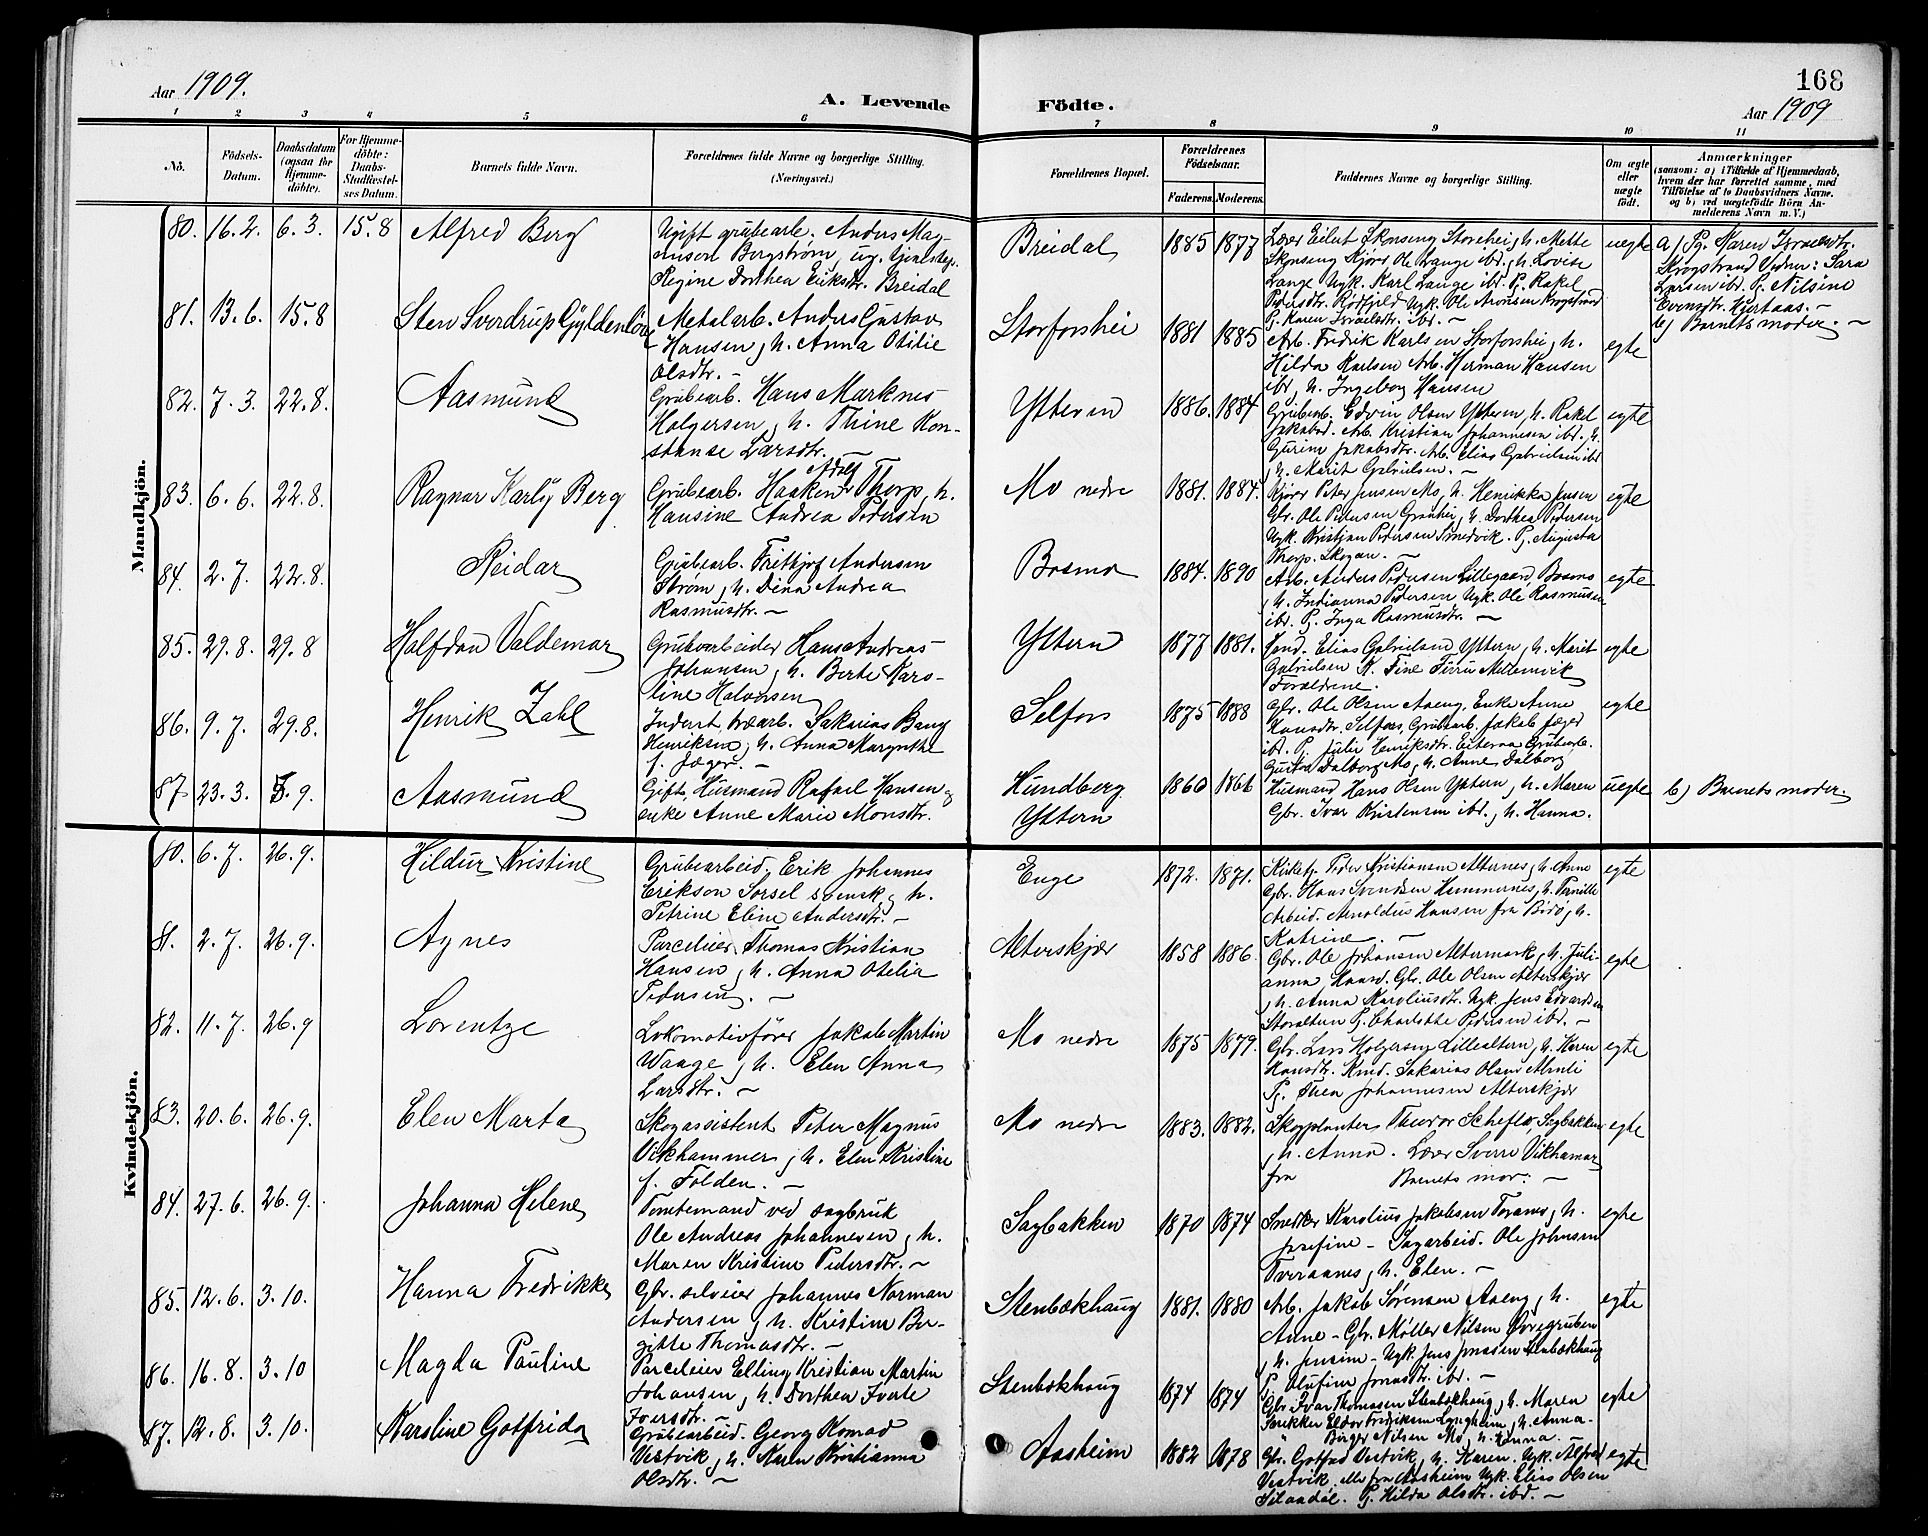 168
Aar 1909.
A. Levende Födte.
Aar 1909
1 2 3 4 5 6 7 8 9 10 11
No. Födsels-Datum. Daabsdatum (ogsaa for Hjemme-döbte). For Hjemme-döbte: Daabs-Stadfæstel-ses Datum. Barnets fulde Navn. Forældrenes fulde Navne og borgerlige Stilling. (Næringsvei.) Forældrenes Bopæl. Forældrenes Födselsaar. Faderens. Moderens. Faddernes Navne og borgerlige Stilling. Om ægte eller uægte født. Anmærkninger (saasom: a) i Tilfælde af Hjemmedaab, hvem der har forrettet samme, med Tilföielse af to Daabsvidners Navne. og b) ved uægtefödte Börn An-melderens Navn m. V.)
Mandkjön.
80. 16.2. 6.3. 15.8 Alfred Berg
Ugift grubearb. Anders Mag-
nuson Bergstrøm, ug. tjenestep.
Regine Dorthea Eriksdtr. Breidal
Breidal 1885 1877
Lærer Eilert Skonseng Storehei, h. Mette
Skonseng Kjører Ole Lange ibd, h. Lovise
Lange Ugk. Karl Lange ibd. Pg. Rakel
Pedersdtr. Rødfjeld Ugk. Ole Aronsen Krogstrand
Pg. Karen Israelsdtr. ibd. –
uegte
a) Pg. Maren Israelsdtr.
Krogstrand Vidner: Sara
Larsen ibd. Pg. Nilsine
Evensdtr. Hjertaas. –
b) Barnets moder. –
81. 13.6. 15.8 Sten Sverdrup Gyldenløve
Metalarb. Anders Gustav
Hansen, h. Anna Otilie
Olsdtr. –
Storforshei 1881 1885
Arb. Fredrik Karlsen Storforshei, h.
Hilda Karlsen Arb. Herman Hansen
ibd, h. Ingeborg Hansen
egte
82. 7.3. 22.8. Aasmund
Grubearb. Hans Marknes
Holgersen, h. Thine Kon-
stanse Larsdtr. –
Yttern 1886. 1884
Grubearb. Edvin Olsen Yttern, h. Rakel
Jakobsd. Arb. Kristian Johannesen ibd. h.
Gurine Jakobsdtr. Arb. Elias Gabrielsen ibd
, h. Marit Gabrielsen. –
egte
83. 6.6. 22.8. Ragnar Karly Berg
Grubearb. Haakon Adolf Thorp, h.
Hansine Andrea Pedersen
Mo nedre 1881. 1884.
Kjører Peter Jensen Mo, h. Henrikka Jensen
Gbr. Ole Pedersen Grønhei, h. Dorthea Pedersen
Ugk. Kristjan Pedersen Smedvik. Pg. Augusta
Thorp. Skogan. –
egte
84. 2.7. 22.8. Reidar
Grubearb. Fritkjof Andersen
Strøm, h. Dina Andrea
Rasmusdtr. –
Bosmo 1884. 1890
Arb. Anders Pedersen Lillegaard, Bosmo
, h. Indianna Pedersen Ugk. Ole Rasmussen
ibd. Pg. Inga Rasmusdtr. –
egte
85. 29.8. 29.8 Halfdan Valdemar
Grubearbeider Hans Andreas
Johansen, h. Berte Karo-
line Halvorsen
Yttern 1877 1881.
Elias Gabrielsen Yttern, h. Marit
Gabrielsen
Forældrene.
egte
86. 9.7. 29.8. Henrik Zahl
Inderst, træarb. Sakarias Bang
Henriksen, h. Anna Margrethe
f. Jæger. –
Selfors 1875 1888
Gbr. Ole Olsen Aaeng, Enke Anne
Hansdtr. Selfors, Grubearb. Jakob Jæger
ibd. Pg. Julie Henriksdtr. Grubearb.
Gustva Dalborg Mo, h. Anne Dalborg
egte
87 23.3. 5.9. Aasmund
Gift, Husmand Rafael Hansen og
enke Anne Marie Monsdtr.
Hundberg
Yttern
1860 1866
Husmand Hans Olsen Yttern, h. Maren
Gbr. Ivar Kristensen ibd., h. Hanna.
uegte
b) Barnets moder.
Kvindekjön.
80. 6.7. 26.9. Hildur Kristine
Grubearbeid. Erik Johannes
Erikson Sorsel svensk, h.
Petrine Eline Andersdtr. –
Enge 1872. 1871.
Kirket. Peder Kristiansen Alternes, h. Anne
Gbr. Hans Svendsen Hemmernes, h. Pernille
Arbeid. Arnoldus Hansen fra Bodø, h.
Katrine. –
egte
81. 2.7. 26.9. Agnes
Parceleier Thomas Kristian
Hansen, h. Anna Otelia
Pedersen. –
Alterskjær 1858 1886.
Gbr. Ole Johansen Altermark, h. Juli-
anna Hansd. Gbr. Ole Olsen Alterskjær
, h. Anna Karoliusdtr. Ugk. Jens Edvardsen
Storaltern Pg. Charlotte Pedersen ibd. –
egte
82. 11.7. 26.9 Lorentze
Lokomotivfører Jakob Martin
Waage, h. Elen Anna
Larsdtr. –
Mo nedre 1875 1879.
Gbr. Lars Holgersen Lillealtern, h. Karen
Hansdtr. Kmd. Sakarias Olsen Almli
Pg. Thea Johannesen Alterskjær
egte
83. 20.6. 26.9. Elen Marta
Skogassistent Peter Magnus
Vikhammer, h. Elen Kristine
f. Folden. –
Mo nedre 1883. 1882.
Skogplanter Theodor Scheflo, Sagbakken
, h. Anna. Lærer Sverre Vikhamar
fra Barnets mor. –
egte
84. 27.6. 26.9. Johanna Helene
Tomtemand ved sagbruk
Ole Andreas Johannesen, h.
Maren Kristine Pedersdtr. –
Sagbakken 1870 1874
Snekker Karolius Jakobsen Toranes, h.
Josefine – Sagarbeid. Ole Johnsen
Tveraanes, h. Elen. –
egte
85. 12.6. 3.10. Hanna Fredrikke
Gbr. selveier Johannes Norman
Andersen, h. Kristine Ber-
gitte Thomasdtr. –
Stenbækhaug 1881. 1880
Arb. Jakob Sørensen Aaeng, h.
Anne – Gbr. Møller Nilsen Revegruben
, h. Jensine – Ugk. Jens Jonassen Stenbækhaug
P. Olufine Jonasdtr. ibd. –
egte
86. 16.8. 3.10 Magda Pauline
Parceleier Elling Kristian Martin
Johansen, h. Dorthea Iverte
Iversdtr. –
Stenbækhaug 1874 1874
Gbr Ivar Thomassen Stenbækhaug, h. Maren
Snekker Eldor Fredriksen Lyngheim, h. Anna.
" Birger Nilsen Mo, h. Hanna. –
egte
87. 12.8. 3.10. Karoline Gotfrida
Grubearbeid. Georg Konrad
Vestvik, h. Karen Kristianna
Olsdtr. –
Aasheim 1882 1878
Gbr. Gotfred Vestvik, h. Karen. Ugk. Alfred
Vestvik, alle fra Aasheim Ugk. Elias Olsen
Pg. Hilda Olsdtr. ibd. –
egte